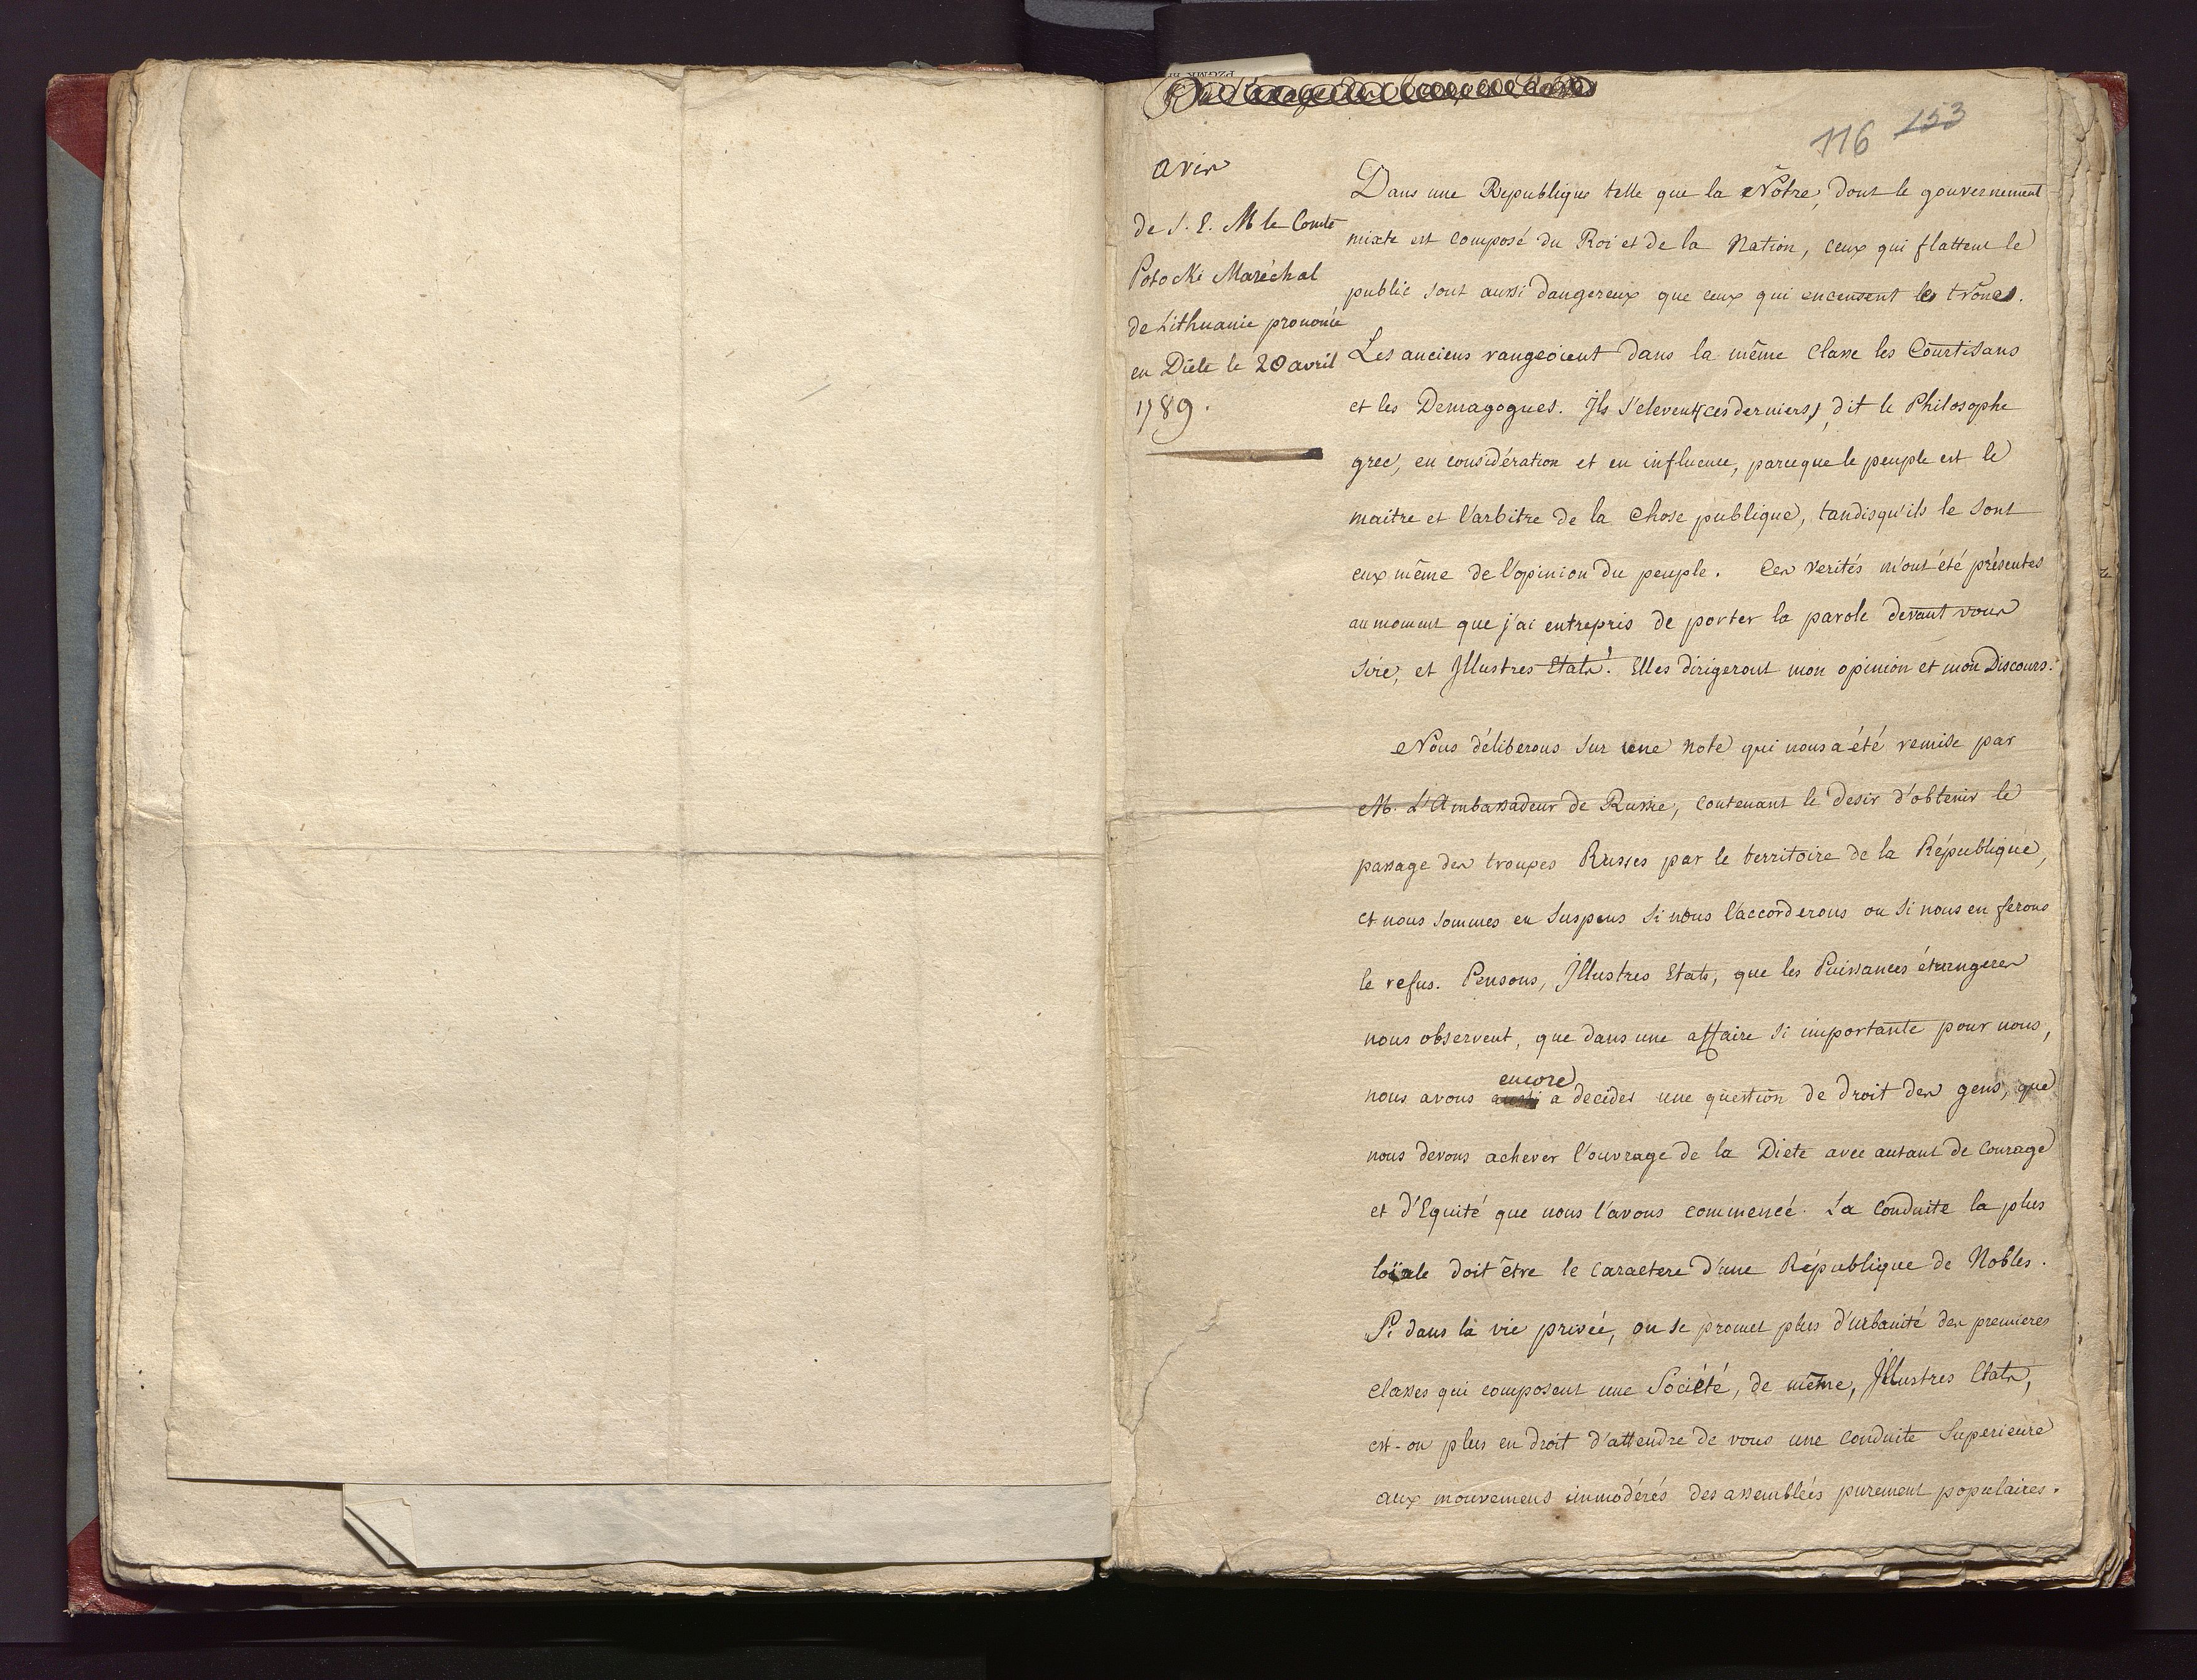 116 153
avis
de S. E. M le Comte
Potocki Maréchal
de Lithuanie prononcé
en Diète le 20 avril
1789.
Dans une Republique telle que la Nôtre, dont le gouvernement
mixte est composé du Roi et de la Nation, ceux qui flattent le
public sont aussi dangereux que ceux qui encensent les trônes.
Les anciens rangeoient dans la même classe les Courtisans
et les Demagogues. Ils s'elevent (ces derniers), dit le Philosophe
grec, en considération et en influence, parceque le peuple est le
maitre et l'arbitre de la chose publique, tandisqu'ils le sont
eux même de l'opinion du peuple. Ces verités m'ont été présentes
au moment que j'ai entrepris de porter la parole devant vous
Sire, et Illustres Etats! Elles dirigeront mon opinion et mon Discours.
Nous déliberons sur une note qui nous a été remise par
M. L'Ambassadeur de Russie, contenant le desir d'obtenir le
passage des troupes Russes par le territoire de la République,
et nous sommes en suspens si nous l'accorderons ou si nous en ferons
le refus. Pensons, Illustres Etats, que les Puissances étrangeres
nous observent, que dans une affaire si importante pour nous,
encore
nous avons aussi a decider une question de droit des gens, que
nous devons achever l'ouvrage de la Diete avec autant de courage
et d'Equité que nous l'avons commencé. La conduite la plus
loïale doit être le caractere d'une République de Nobles.
Si dans la vie privée, on se promet plus d'urbanité des premieres
classes qui composent une Société, de même, Illustres Etats,
est-on plus en droit d'attendre de vous une conduite superieure
aux mouvemens immodérés des assemblées purement populaires.